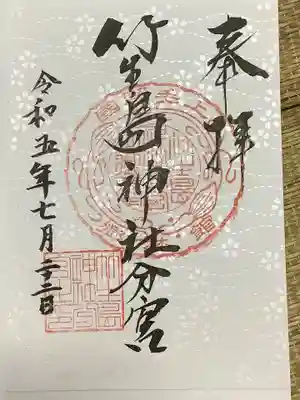 奉拝
竹生島神社分宮
令和五年七月二十二日